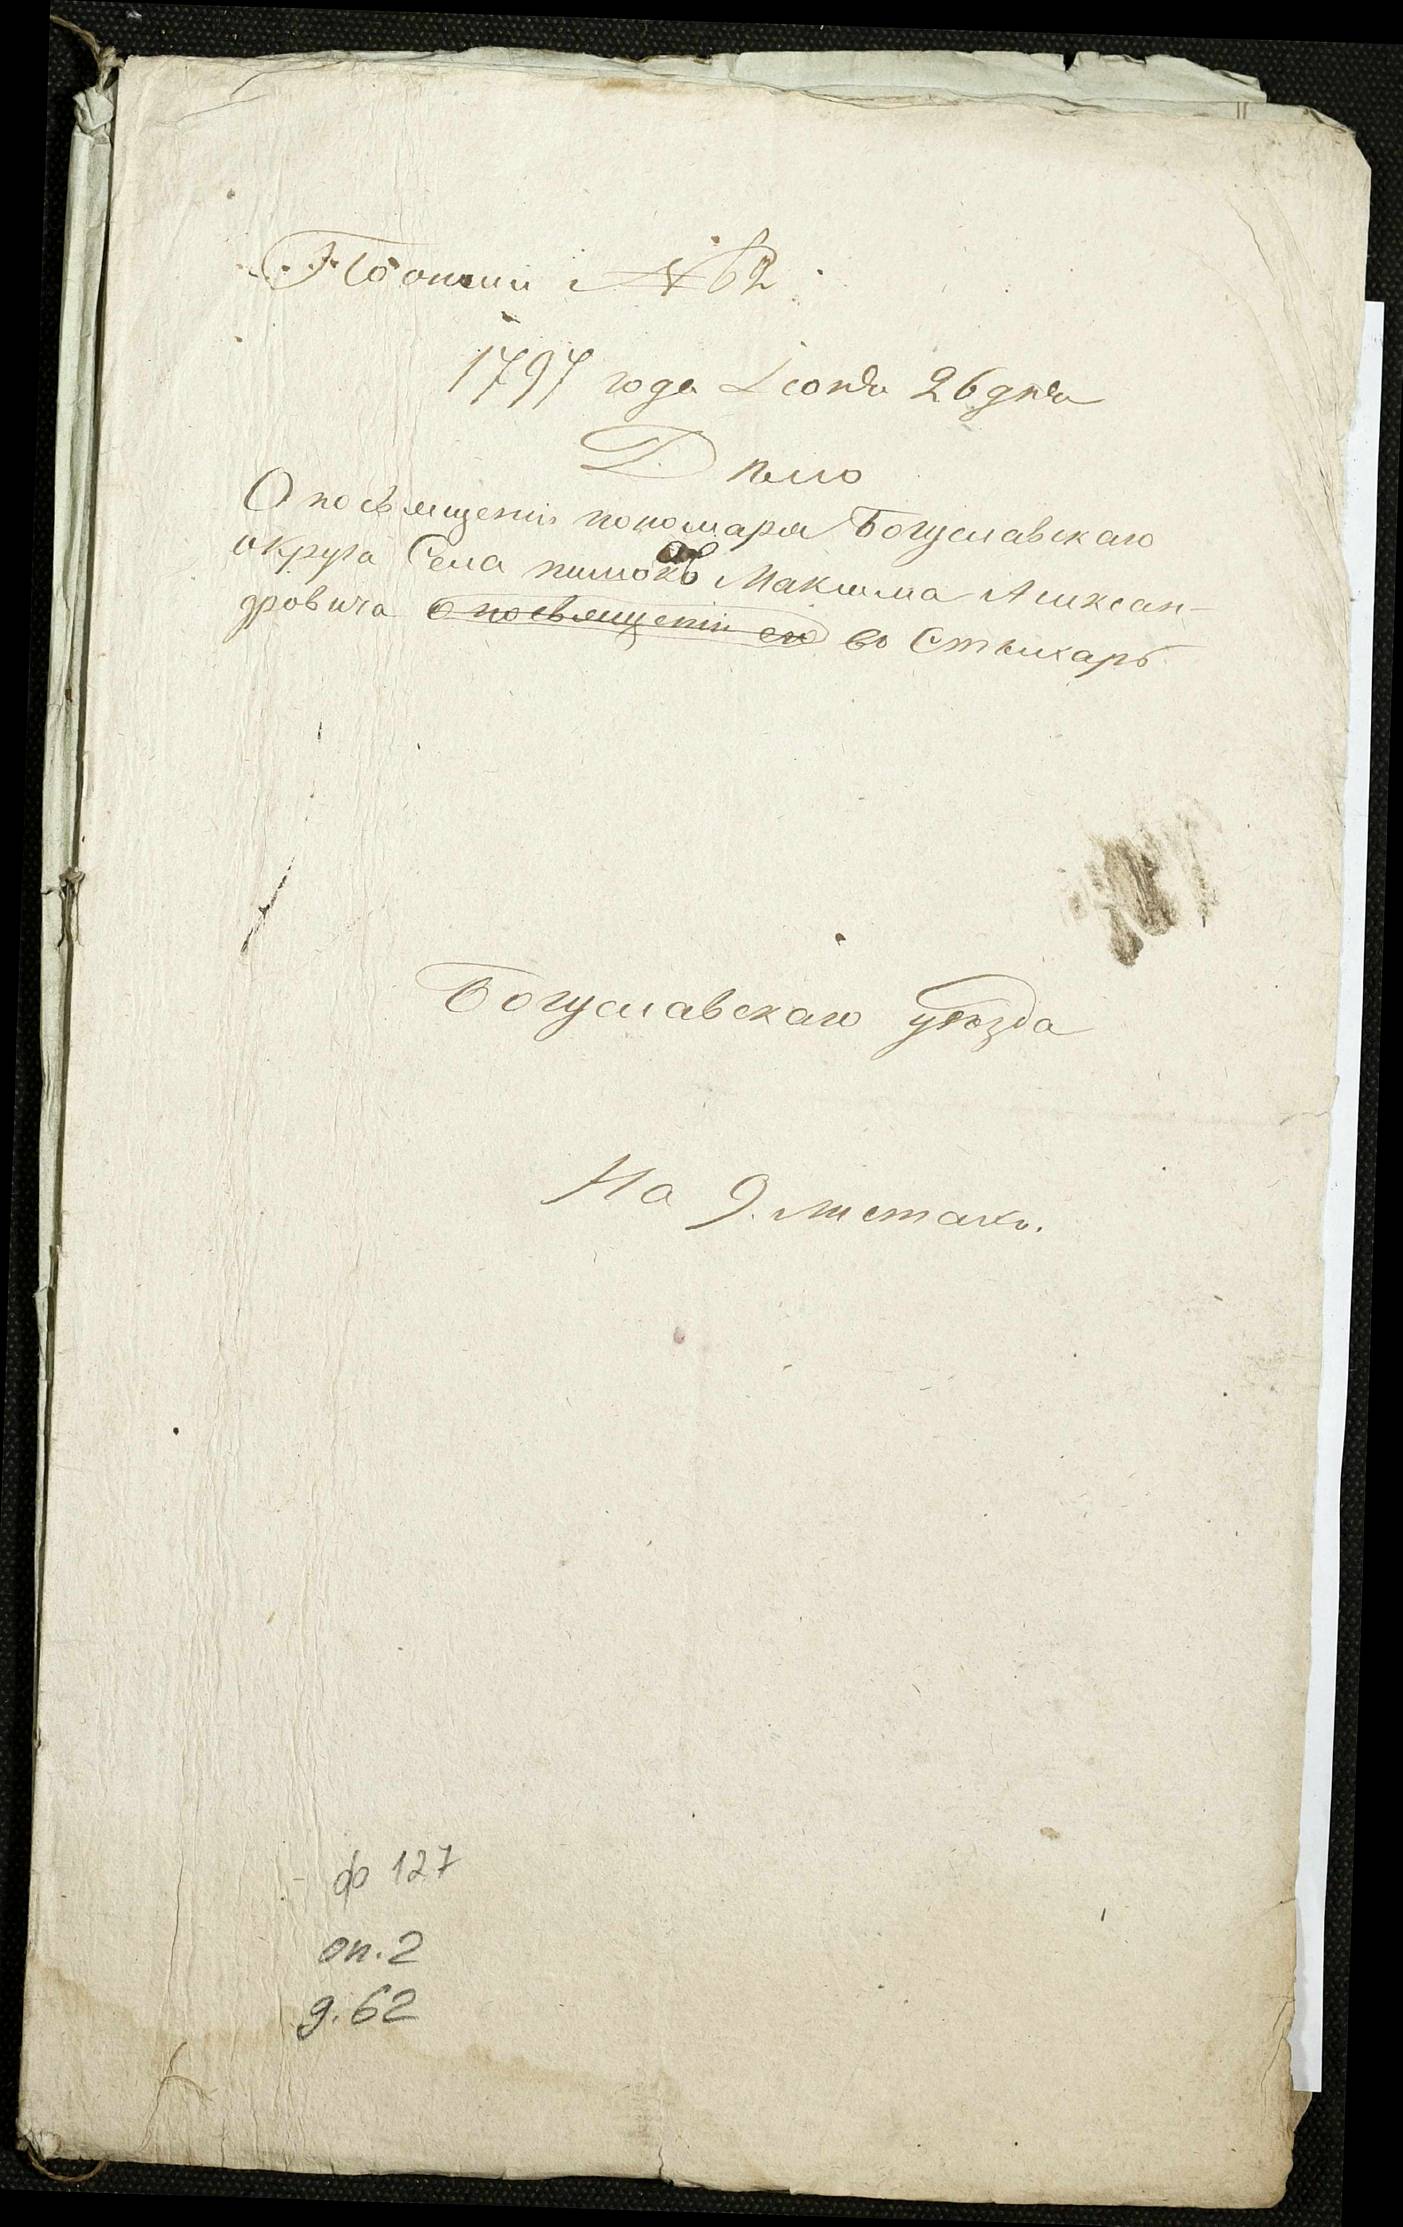 По описи № 62
1797 года Іюня 26 дня
Дѣло
О посвященіи пономаря Богуславскаго
округа Села Максима Аликсан
дровича о посвященіи его во Стихарь
Богуславскаго уѣзда
На 9. листахъ.
ф 127
оп. 2
д. 62